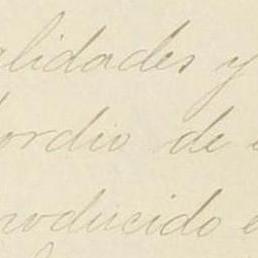 alidades y
ordio de
producido e